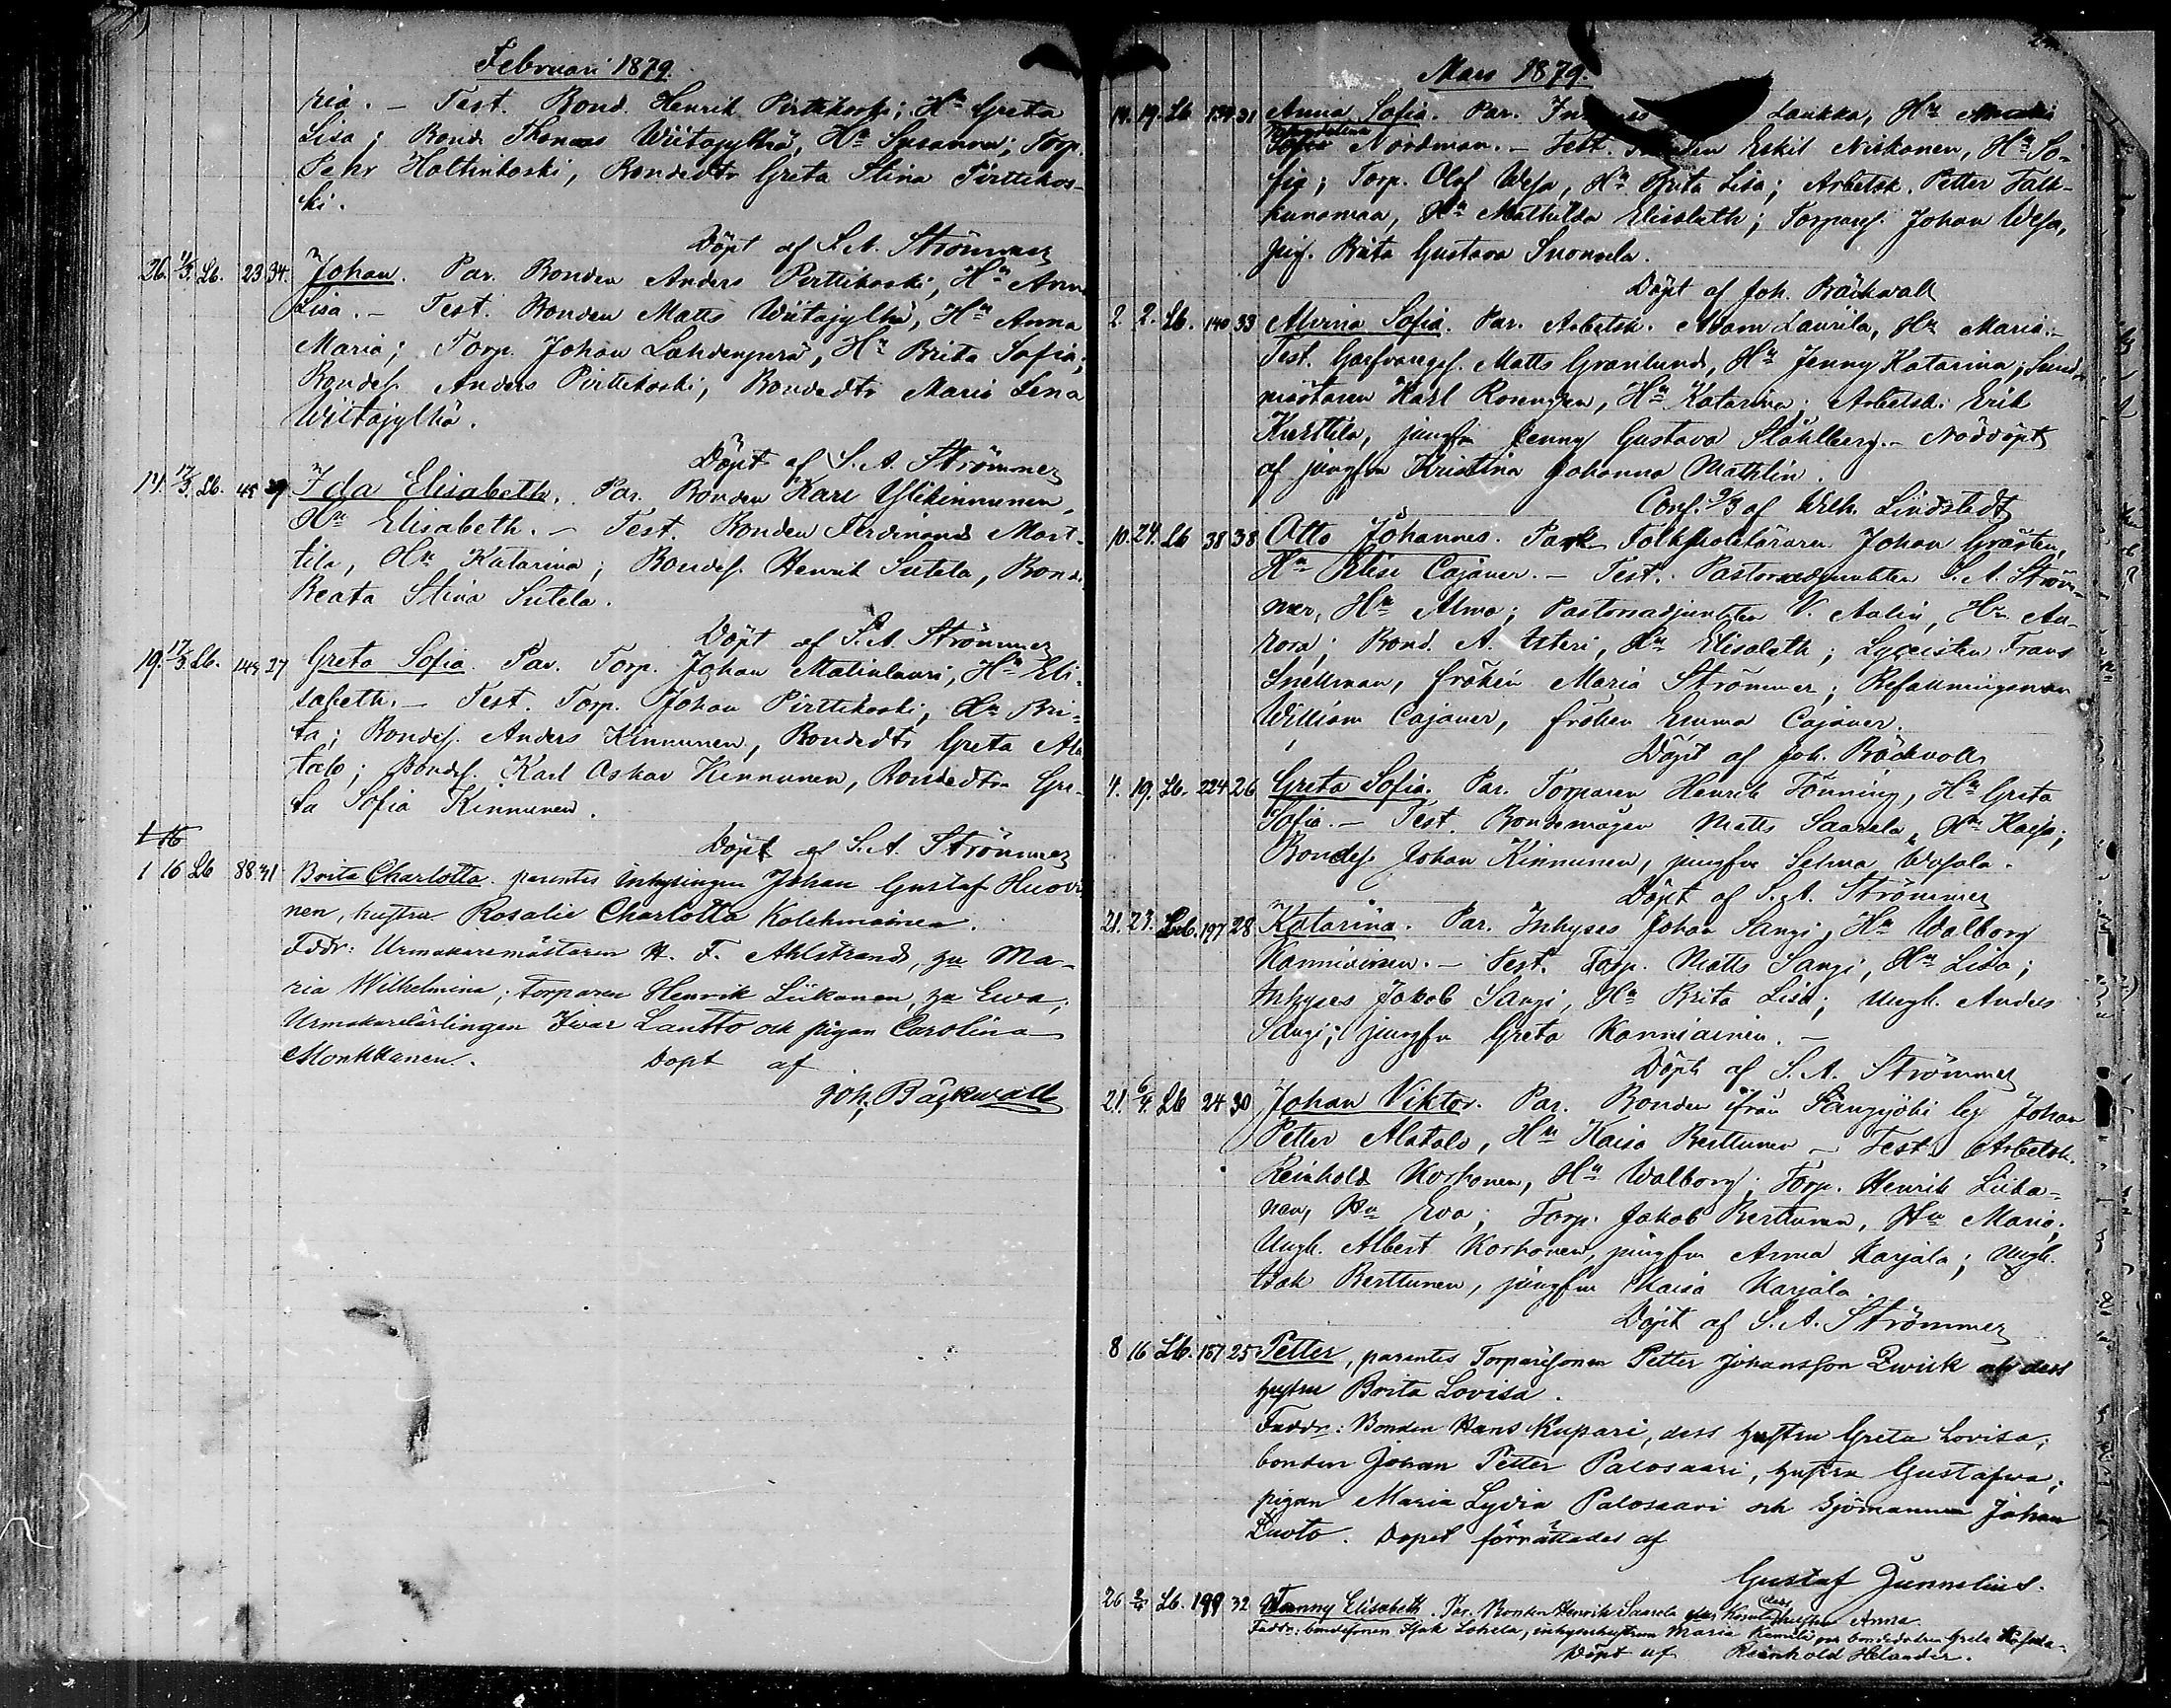 Februari 1879.
ria. – Test. Bond. Henrik Pirttikoski, Hu Greta
Lisa; Bond. Thomas Wiitajylhä, Hu Susanna; Torp.
Pehr Holtinkoski, Bondedtr Greta Stina Pirttikos-
ki.
Döpt af S. A. Strömmer
26. 17/3. Lb. 23 34. Johan. Par. Bonden Anders Pirttikoski, Hu Anna
Lisa. – Test. Bonden Matts Wiitajylhä, Hu Anna
Maria; Torp. Johan Lahdenperä, Hu Brita Sofia;
Bondes. Anders Pirttikoski, Bondedtr Maria Lena
Wiitajylhä.
Döpt af S. A. Strömmer
14. 17/3. Lb. 45 29 Ida Elisabeth. Par. Bonden Karl Ylikinnunen,
Hu Elisabeth. – Test. Bonden Ferdinand Mart-
tila, Hu Katarina; Bondes. Henrik Sutela, Bondd.
Beata Stina Sutela.
Döpt af S. A. Strömmer
19. 17/3 Lb. 149 27 Greta Sofia. Par. Torp. Johan Matinlauri, Hu Eli-
sabeth. – Test. Torp. Johan Pirttikoski, Hu Bri-
ta; Bondes. Anders Kinnunen, Bondedtr Greta Ala-
talo; Bondes. Karl Oskar Kinnunen, Bondedtr Gre-
ta Sofia Kinnunen.
Döpt af S. A. Strömmer
1 16
1 16 Lb 88 31 Brita Charlotta. parentes Inhysingen Johan Gustaf Huovi-
nen, hustru Rosalie Charlotta Kolehmainen.
Faddr: Urmakaremästaren H. F. Ahlstrand, hu Ma-
ria Wilhelmina; torparen Henrik Liikanen, hu Ewa;
Urmakarelärlingen Ivar Lantto och pigan Carolina
Monkkanen. Döpt af
Joh. Bäckwall
Mars 1879.
14. 19. Lb 139 31 Anna Sofia. Par. Laukka, Hu
Nordman. – Test. Eskil Niskanen, Hu So-
fia; Torp. Olof Wesa, Hu Brita Lisa; Arbetsk. Petter Falk-
kunamaa, Hu Mathilda Elisabeth; Torpares. Johan Wesa,
pig. Brita Gustava Suomela.
Döpt af Joh. Bäckwall
2. 2. Lb. 140 33 Alvina Sofia. Par. Arbetsk. Adam Laurila, Hu Maria. –
Test. Garfvaregs. Matts Granlund, Hu Jenny Katarina; Sund-
mästaren Karl Rosengren, Hu Katarina; Arbetsk. Erik
Kurttila, jungfru Jenny Gustava Ståhlberg. – Nöddöpt
af jungfru Kristina Johanna Mathlin.
Conf. 9/3 af Wilh. Lindstedt
10. 24. Lb 38 38 Otto Johannes. Par. Folkskoleläraren Johan Gråsten,
Hu Elise Cajaner. – Test. Pastorsadjunkten S. A. Ström-
mer, Hu Alma; Pastorsadjunkten V. Aalin, Hu Au-
rora; Bond. A. Uteri, Hu Elisabeth; Lyceisten Frans
Snellman, fröken Maria Strömmer; Befallningsman
William Cajaner, fröken Emma Cajaner.
Döpt af Joh. Bäckwall
4. 19. Lb. 224 26 Greta Sofia. Par. Torparen Henrik Tönning, Hu Greta
Sofia. – Test. Bondemågen Matts Saarela, Hu Kajsa;
Bondes. Johan Kinnunen, jungfru Selma Wojala.
Döpt af S. A. Strömmer
21. 23. Lb. 197 28 Katarina. Par. Inhyses Johan Sangi, Hu Walborg
Kanniainen. – Test. Torp. Matts Sangi, Hu Lisa;
Inhyses Jakob Sangi, Hu Brita Lisa; Ungk. Anders
Sangi; jungfru Greta Kanniainen. –
Döpt af S. A. Strömmer
21. 6/4. Lb 24 30 Johan Viktor. Par. Bonden ifrån Sangijoki by Johan
Petter Alatalo, Hu Kaisa Berttunen – Test. Arbetsk.
Reinhold Korhonen, Hu Walborg; Torp. Henrik Liika-
nen, Hu Eva; Torp. Jakob Berttunen, Hu Maria;
Ungk. Albert Korhonen, jungfru Anna Karjala; Ungk.
Isak Berttunen, jungfru Kaisa Karjala.
Döpt af S. A. Strömmer
8 16 Lb. 187 25 Petter, parentes Torparesonen Petter Johansson Qwick och dess
hustru Brita Lovisa.
Faddr: Bonden Hans Kupari, dess hustru Greta Lovisa;
bonden Johan Petter Palosaari, hustru Gustafva;
pigan Maria Lydia Palosaari och Sjömannen Johan
Luoto. Dopet förrättades af
Gustaf Junnelius.
26 2/4 Lb. 199 32 Fanny Elisabeth. Par. Bonden Henrik Saarela dess hustru Anna
Faddr: bondesonen Isak Lohela, inhyseshustrun Maria Kemilä och bondedottren Greta
Döpt af Reinhold Helander.